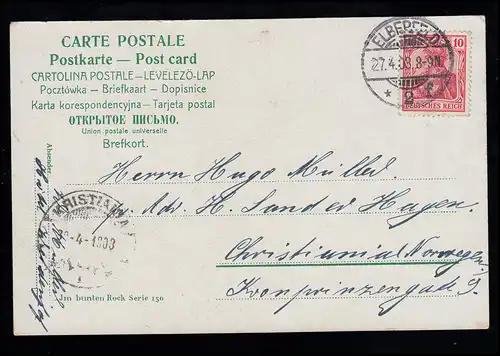 CARTE POSTALE
Postkarte — Post card
CARTOLINA POSTALE – LEVELEZÖ-LAP
Pocztówka – Briefkaart – Dopisnice
Karta korespondencyjna – Tarjeta postal
ОТКРЫТОЕ ПИСЬМО.
Union postale universelle
Brefkort.
ELBERFELD
27.4.03.8-9N.
* 2 f
10
DEUTSCHES REICH
Absender:
Herrn Hugo Müller.
Adr. H. Sand ed Hagen.
Christiania Norwegen
Kronprinzengade 9.
KRISTIANIA
-4-1903
Im bunten Rock Serie 150